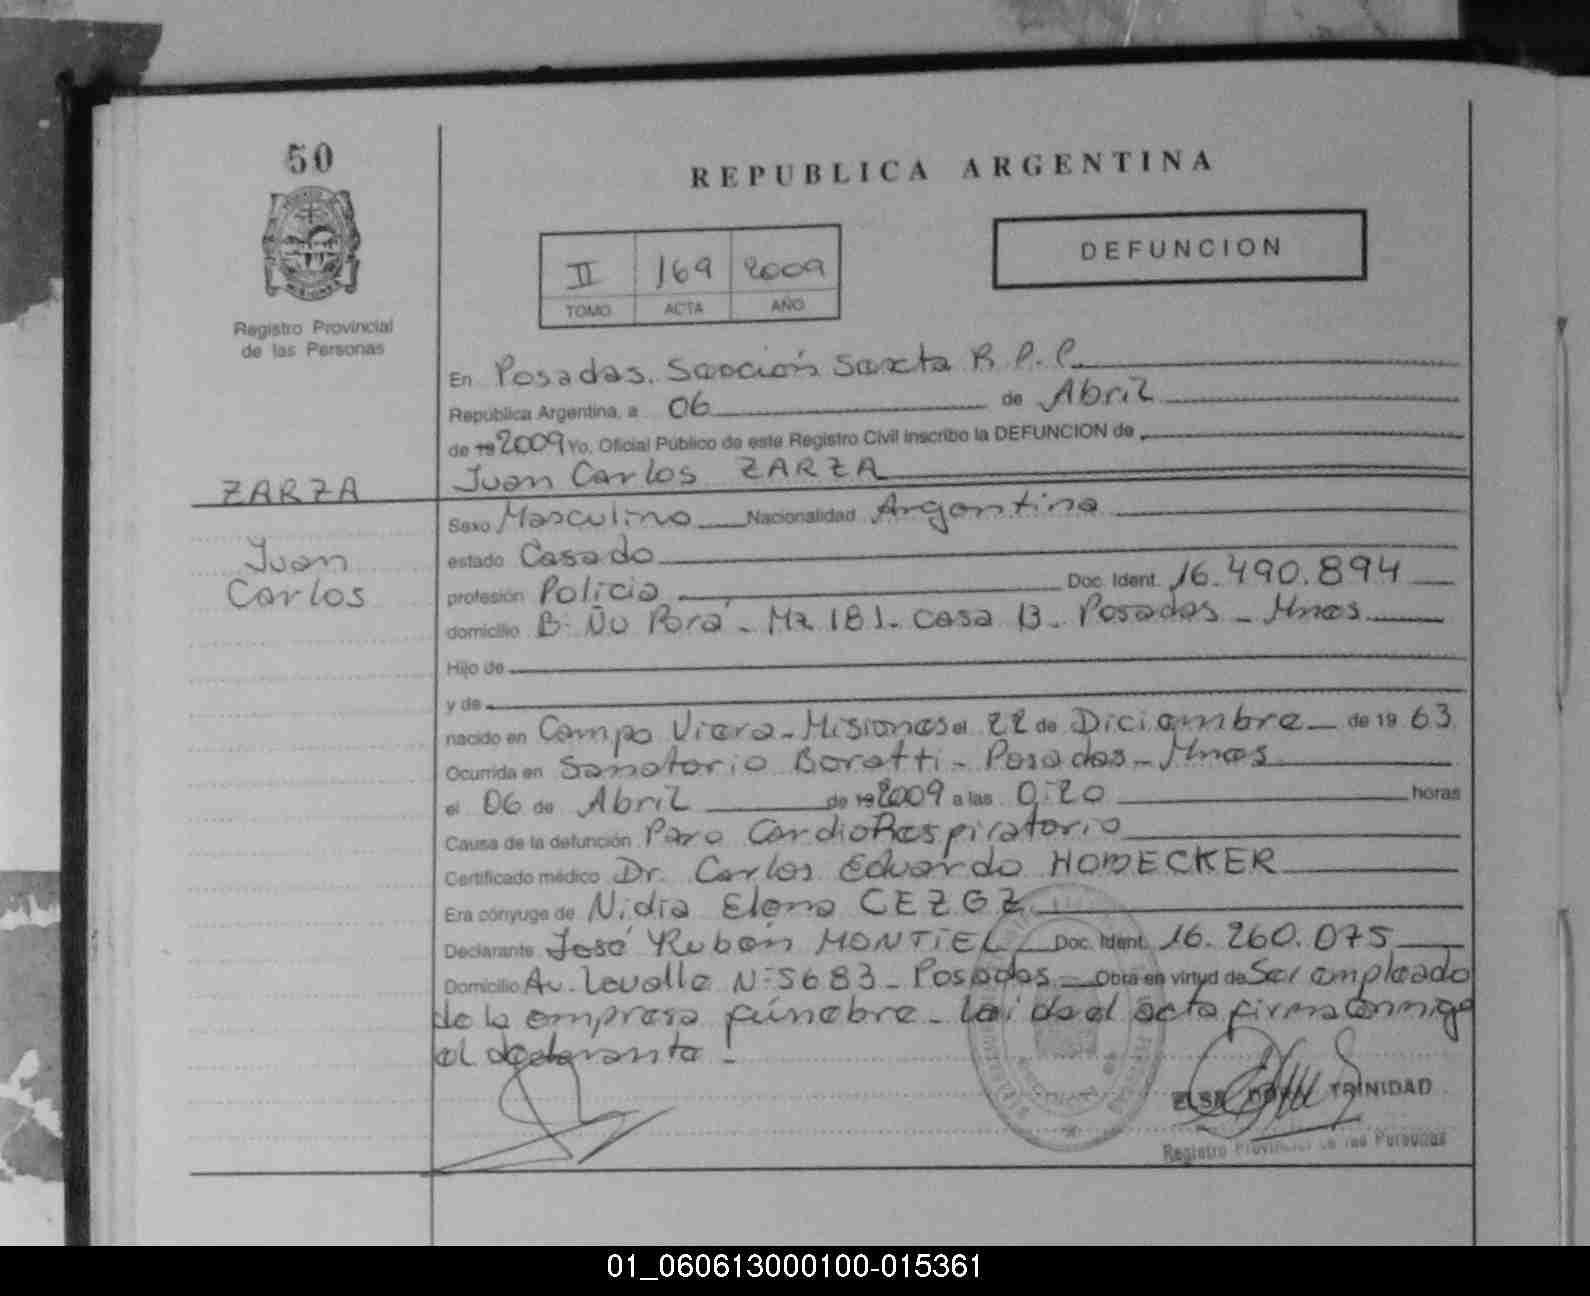 50
REPUBLICA ARGENTINA
DEFUNCION
II 169 2009
TOMO ACTA AÑO
MISIONES
Registro Provincial
de las Personas
En Posadas. Sección Sexta R. P. P.
República Argentina, a 06 de Abril
de 19 2009 Yo, Oficial Público de este Registro Civil inscribo la DEFUNCION de
Juan Carlos ZARZA
ZARZA
Juan
Carlos
Sexo Masculino Nacionalidad Argentina
estado Casado
profesión Policia Doc. Ident. 16.490.894
domicilio B: Ñu Porá - Mz 181. casa 13. Posadas - Mnes
Hijo de
y de
nacido en Campo Viera - Misiones el 22 de Diciembre de 19 63
Ocurrida en Sanatorio Boratti - Posadas - Mnes
el 06 de Abril de 19 2009 a las 0:20 horas
Causa de la defunción Paro CardioRespiratorio
Certificado médico Dr. Carlos Eduardo
Era cónyuge de Nidia Elena
Declarante José Rubén MONTIEL Doc. Ident. 16.260.075
Domicilio Av. Lavalle N: 5683 - Posadas Obra en virtud de Ser empleado
de la empresa fúnebre - Leída el acta firma conmigo
el declarante
ELSA TRINIDAD
Registro Provincial de las Personas
01_060613000100-015361